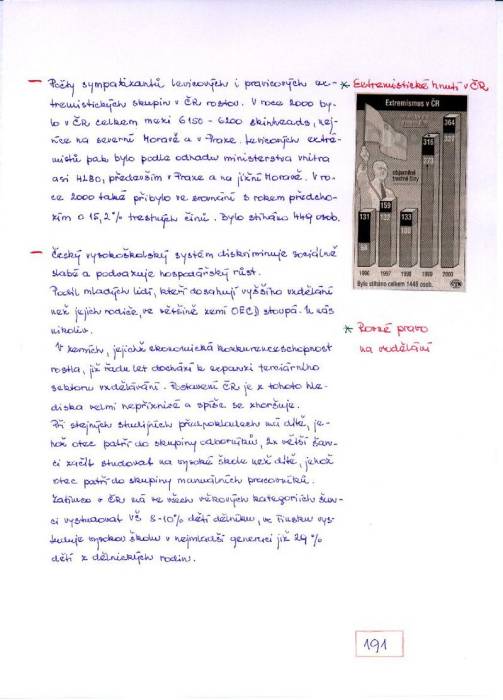 – Počty sympatizantů levicových i pravicových ex-
tremistických skupin v ČR rostou. V roce 2000 by-
lo v ČR celkem mezi 6150 - 6200 skinheads, nej-
více na severní Moravě a v Praze. Levicových extré-
mistů pak bylo podle odhadu ministerstva vnitra
asi 4280, především v Praze a na jižní Moravě. V ro-
ce 2000 také přibylo ve srovnání s rokem předcho-
zím o 15,2% trestných činů. Bylo stíháno 449 osob.
* Extremistické hnutí v ČR
Extremismus v ČR
364
327
316
273
objasněné
trestné činy
159
132
133
100
131
1996 1997 1998 1999 2000
Bylo stíháno celkem 1446 osob.
– Český vysokoškolský systém diskriminuje sociálně
slabé a podvazuje hospodářský růst.
Podíl mladých lidí, kteří dosahují vyššího vzdělání
než jejich rodiče, ve většině zemí OECD stoupá. U nás
nikoliv.
V zemích, jejichž ekonomická konkurenceschopnost
rostla, již řadu let dochází k expanzi terciárního
sektoru vzdělávání. Postavení ČR je z tohoto hle-
diska velmi nepříznivé a spíše se zhoršuje.
Při stejných studijních předpokladech má dítě, je-
hož otec patří do skupiny odborníků, 2x větší šan-
ci začít studovat na vysoké škole než dítě, jehož
otec patří do skupiny manuálních pracovníků.
Zatímco v ČR má ve všech věkových kategoriích šan-
ci vystudovat VŠ 8-10% dětí dělníků, ve Finsku vys-
tuduje vysokou školu v nejmladší generaci již 29%
dětí z dělnických rodin.
* Rovné právo
na vzdělání
191